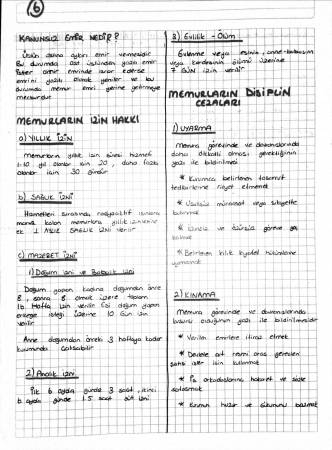 6
KANUNSUZ EMİR NEDİR?
Üstün daha aykırı emir vermesidir.
Bu durumda ast üstünden yazılı emir
ister amir emrinde ısrar ederse
emrini yazılı olarak yeniler ve bu
durumda memur emri yerine getirmeye
mecburdur
MEMURLARIN İZİN HAKKI
a) YILLIK İZİN
Memurların yıllık izin süresi hizmeti
1-10 yıl olanlar için 20, daha fazla
olanlar için 30 gündür
b) SAĞLIK İZNİ
Hizmetleri sırasında, radyoaktif ışınlara
maruz kalan memurlara yıllık izinlerine
ek 1 AYLIK SAĞLIK İZNİ verilir
c) MAZERET İZNİ
1) Doğum İzni ve Babalık İzni
Doğum yapan kadına doğumdan önce
8, sonra 8 olmak üzere toplam
16 Hafta izin verilir Eşi doğum yapan
erkeğe isteği üzerine 10 Gün izin
verilir
Anne doğumdan önceki 3 haftaya kadar
kurumunda çalışabilir
2) Analık izni
İlk 6 ayda günde 3 saat, ikinci
6 ayda günde 1.5 saat süt izni
3) Evlilik - Ölüm
Evlenme veya eşinin, anne-babasının
veya kardeşinin ölümü üzerine
7 GÜN izin verilir
MEMURLARIN DİSİPLİN
CEZALARI
1) UYARMA
Memura görevinde ve davranışlarında
daha dikkatli olması gerektiğinin
yazı ile bildirilmesi
* Kurumca belirlenen tasarruf
tedbirlerine riayet etmemek
* Usulsüz müracaat veya şikayette
bulunmak
* özürsüz göreve geç
* Belirlenen kılık kıyafet hükümlerine
uymamak
2) KINAMA
Memura görevinde ve davranışlarında
kusurlu olduğunun yazı ile bildirilmesidir
* Verilen emirlere itiraz etmek
* Devlete ait resmi araç gereçleri
özel işler için kullanmak
* İş arkadaşlarına hakaret ve sözle
sataşmak
* Kurumun huzur ve sükununu bozmak